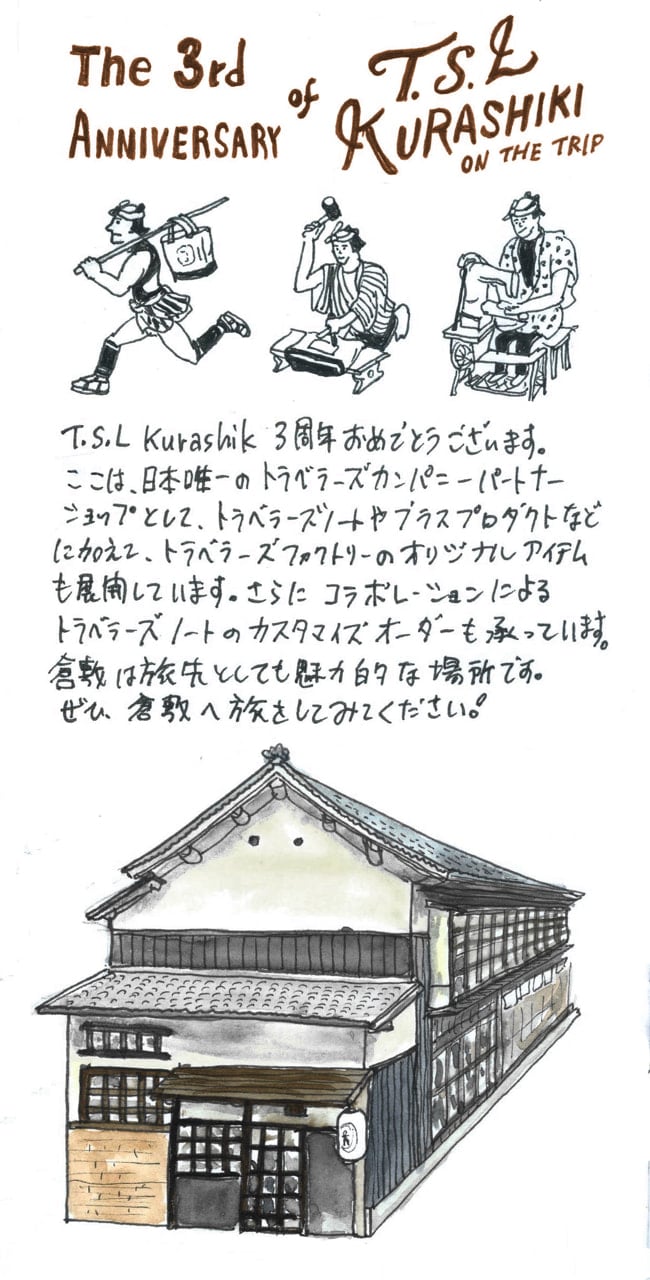 The 3rd
ANNIVERSARY
of
T.S.L
KURASHIKI
ON THE TRIP
T.S.L Kurashik 3周年おめでとうございます。
ここは、日本唯一のトラベラーズカンパニーパートナー
ショップとして、トラベラーズノートやブラスプロダクトなど
に加えて、トラベラーズファクトリーのオリジナルアイテム
も展開しています。さらにコラボレーションによる
トラベラーズノートのカスタマイズオーダーも承っています。
倉敷は旅先としても魅力的な場所です。
ぜひ、倉敷へ旅をしてみてください!